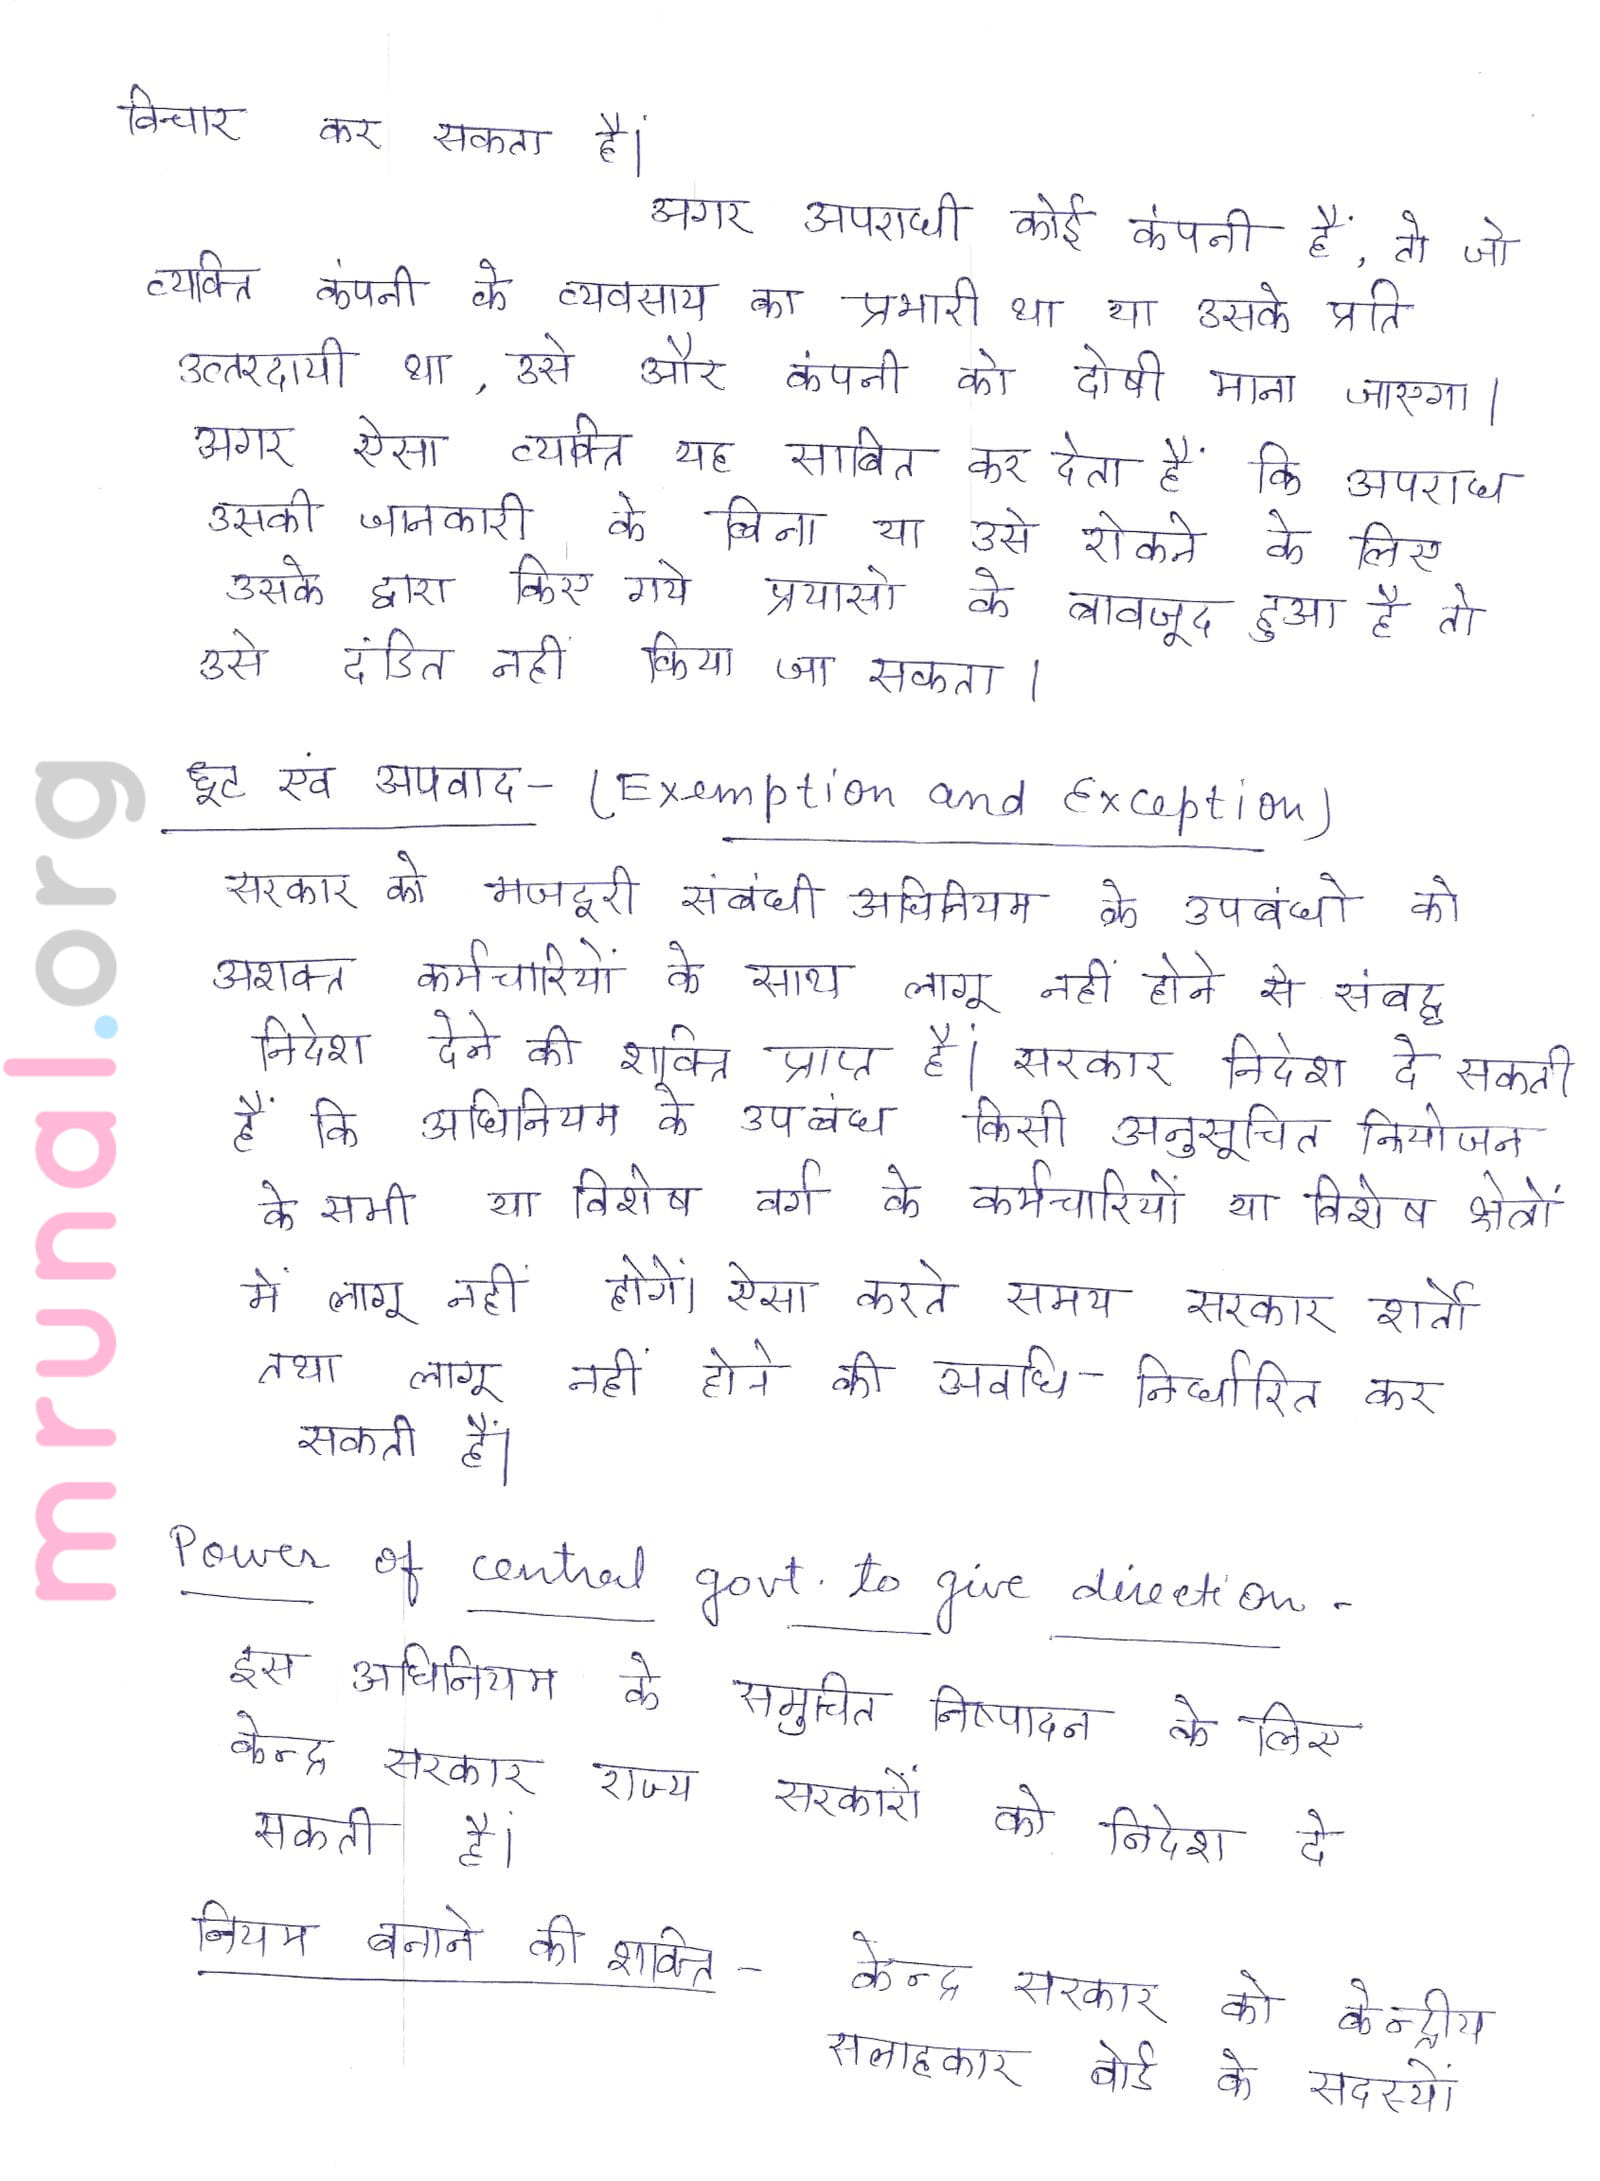 विचार कर सकता हैं।
अगर अपराधी कोई कंपनी हैं, तो जो
व्यक्ति कंपनी के व्यवसाय का प्रभारी था या उसके प्रति
उत्तरदायी था, उसे और कंपनी को दोषी माना जाएगा।
अगर ऐसा व्यक्ति यह साबित कर देता हैं कि अपराध
उसकी जानकारी के बिना या उसे रोकने के लिए
उसके द्वारा किए गये प्रयासो के बावजूद हुआ है तो
उसे दंडित नहीं किया जा सकता।
छूट एंव अपवाद- (Exemption and Exception)
सरकार को मजदूरी संबंधी अधिनियम के उपबंधो को
अशक्त कर्मचारियों के साथ लागू नहीं होने से संबद्ध
निदेश देने की शक्ति प्राप्त हैं। सरकार निदेश दे सकती
हैं कि अधिनियम के उपबंध किसी अनुसूचित नियोजन
के सभी या विशेष वर्ग के कर्मचारियों या विशेष क्षेत्रों
में लागू नहीं होगें। ऐसा करते समय सरकार शर्तो
तथा लागू नहीं होने की अवधि- निर्धारित कर
सकती हैं।
Power of central govt. to give direction -
इस अधिनियम के समुचित निष्पादन के लिए
केन्द्र सरकार राज्य सरकारों को निदेश दे
सकती हैं।
नियम बनाने की शक्ति - केन्द्र सरकार को केन्द्रीय
सलाहकार बोर्ड के सदस्यों
mrunal.org